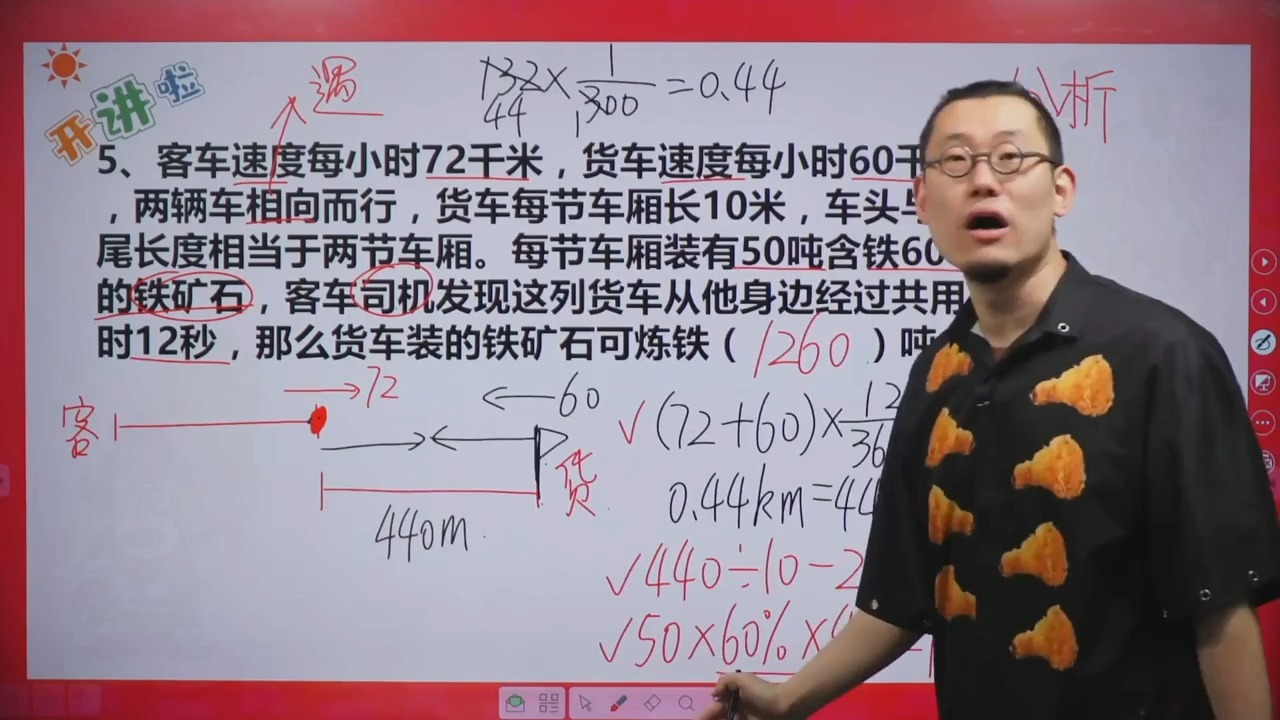 开讲啦
遇
132×1/300=0.44
44 1
分析
5、客车速度每小时72千米，货车速度每小时60千
，两辆车相向而行，货车每节车厢长10米，车头与
尾长度相当于两节车厢。每节车厢装有50吨含铁60
的铁矿石，客车司机发现这列货车从他身边经过共用
时12秒，那么货车装的铁矿石可炼铁（1260）吨
→72
←60
客
货
440m
√(72+60)×12/36
0.44km=44
√440÷10-2
√50×60%×4